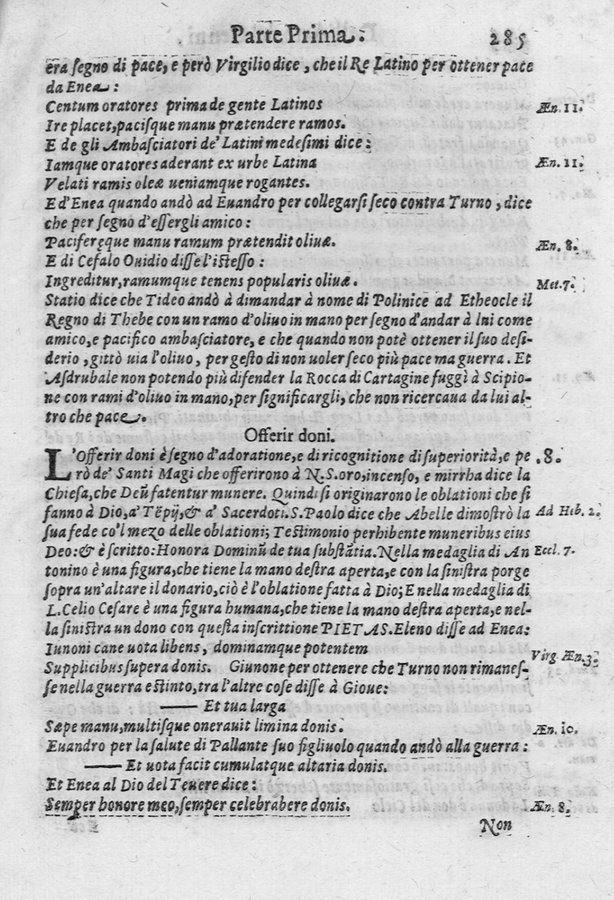 Parte Prima. 285
era segno di pace, e però Virgilio dice, che il Re Latino per ottener pace
da Enea:
Centum oratores prima de gente Latinos Æn. 11.
Ire placet, pacisque manu prætendere ramos.
E de gli Ambasciatori de' Latini medesimi dice:
Iamque oratores aderant ex urbe Latina Æn. 11.
Velati ramis oleæ ueniamque rogantes.
E d'Enea quando andò ad Euandro per collegarsi seco contra Turno, dice
che per segno d'essergli amico:
Paciferęque manu ramum prætendit oliuæ. Æn. 8.
E di Cefalo Ouidio disse l'istesso:
Ingreditur, ramumque tenens popularis oliuæ. Met. 7.
Statio dice che Tideo andò à dimandar à nome di Polinice ad Etheocle il
Regno di Thebe con un ramo d'oliuo in mano per segno d'andar à lui come
amico, e pacifico ambasciatore, e che quando non potè ottener il suo desi-
derio, gittò uia l'oliuo, per gesto di non uoler seco più pace ma guerra. Et
Asdrubale non potendo più difender la Rocca di Cartagine fuggì à Scipio-
ne con rami d'oliuo in mano, per significargli, che non ricercaua da lui al-
tro che pace.
Offerir doni.
L'Offerir doni è segno d'adoratione, e di ricognitione di superiorità, e pe .8.
rò de' Santi Magi che offerirono à N.S. oro, incenso, e mirrha dice la
Chiesa, che Deũ fatentur munere. Quindi si originarono le oblationi che si
fanno à Dio, a' Tẽpij, & a' Sacerdoti. S. Paolo dice che Abelle dimostrò la Ad Heb. 2.
sua fede co'l mezo delle oblationi; Testimonio perhibente muneribus eius
Deo: & è scritto: Honora Dominũ de tua substãtia. Nella medaglia di An Eccl. 7.
tonino è una figura, che tiene la mano destra aperta, e con la sinistra porge
sopra un'altare il donario, ciò è l'oblatione fatta à Dio; E nella medaglia di
L. Celio Cesare è una figura humana, che tiene la mano destra aperta, e nel-
la sinistra un dono con questa inscrittione PIETAS. Eleno disse ad Enea:
Iunoni cane uota libens, dominamque potentem Virg. Æn. 3.
Supplicibus supera donis. Giunone per ottenere che Turno non rimanes-
se nella guerra estinto, tra l'altre cose disse à Gioue:
—— Et tua larga
Sæpe manu, multisque onerauit limina donis. Æn. 10.
Euandro per la salute di Pallante suo figliuolo quando andò alla guerra:
—— Et uota facit cumulatque altaria donis.
Et Enea al Dio del Teuere dice:
Semper honore meo, semper celebrabere donis. Æn. 8.
Non